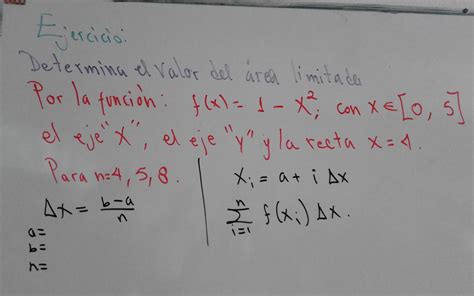 Ejercicio:
Determina el valor del área limitada
Por la función: f(x) = 1 - x²; con x ∈ [0, 5]
el eje "X", el eje "Y" y la recta x = 4.
Para n=4, 5, 8.
Δx = b-a/n
a=
b=
n=
xᵢ = a + i Δx
∑ⁿᵢ₌₁ f(xᵢ) Δx.